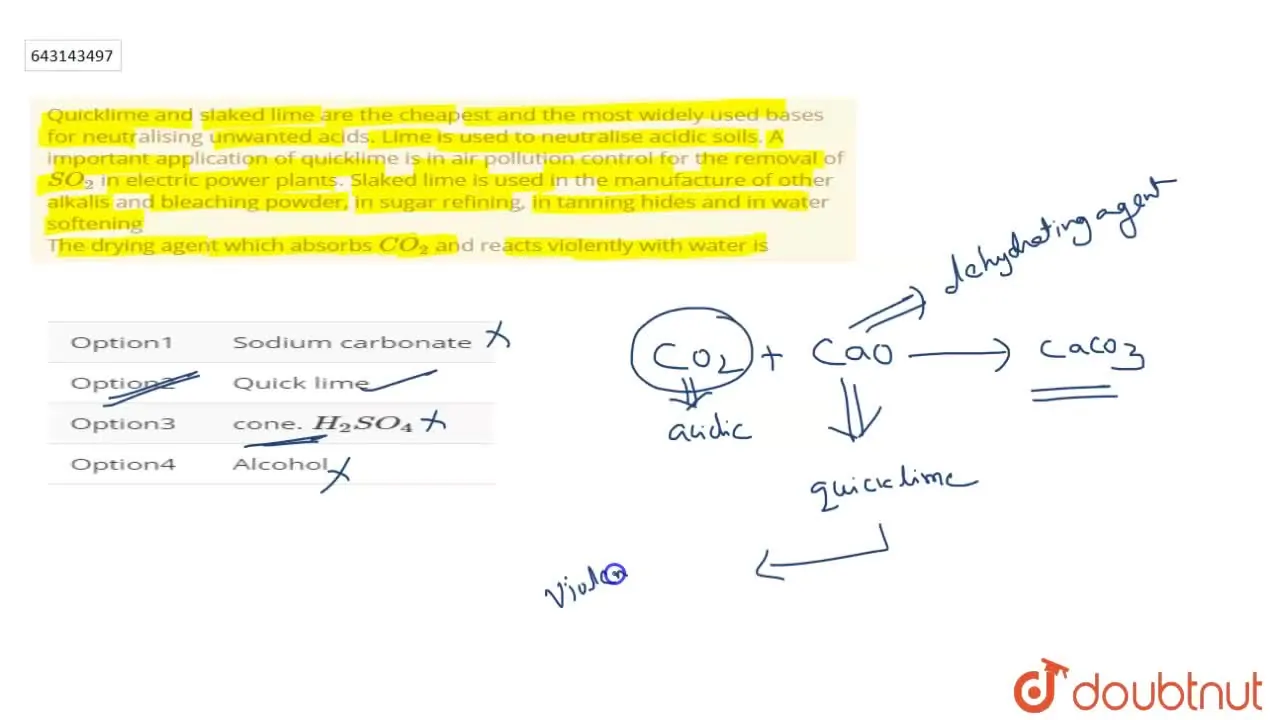 643143497
Quicklime and slaked lime are the cheapest and the most widely used bases
for neutralising unwanted acids. Lime is used to neutralise acidic soils. A
important application of quicklime is in air pollution control for the removal of
SO₂ in electric power plants. Slaked lime is used in the manufacture of other
alkalis and bleaching powder, in sugar refining, in tanning hides and in water
softening
The drying agent which absorbs CO₂ and reacts violently with water is
dehydrating agent
Option1 Sodium carbonate
CO₂ + CaO → CaCO3
Option2 Quick lime
Option3 cone. H₂SO₄
acidic
Option4 Alcohol
quicklime
Violen
doubtnut